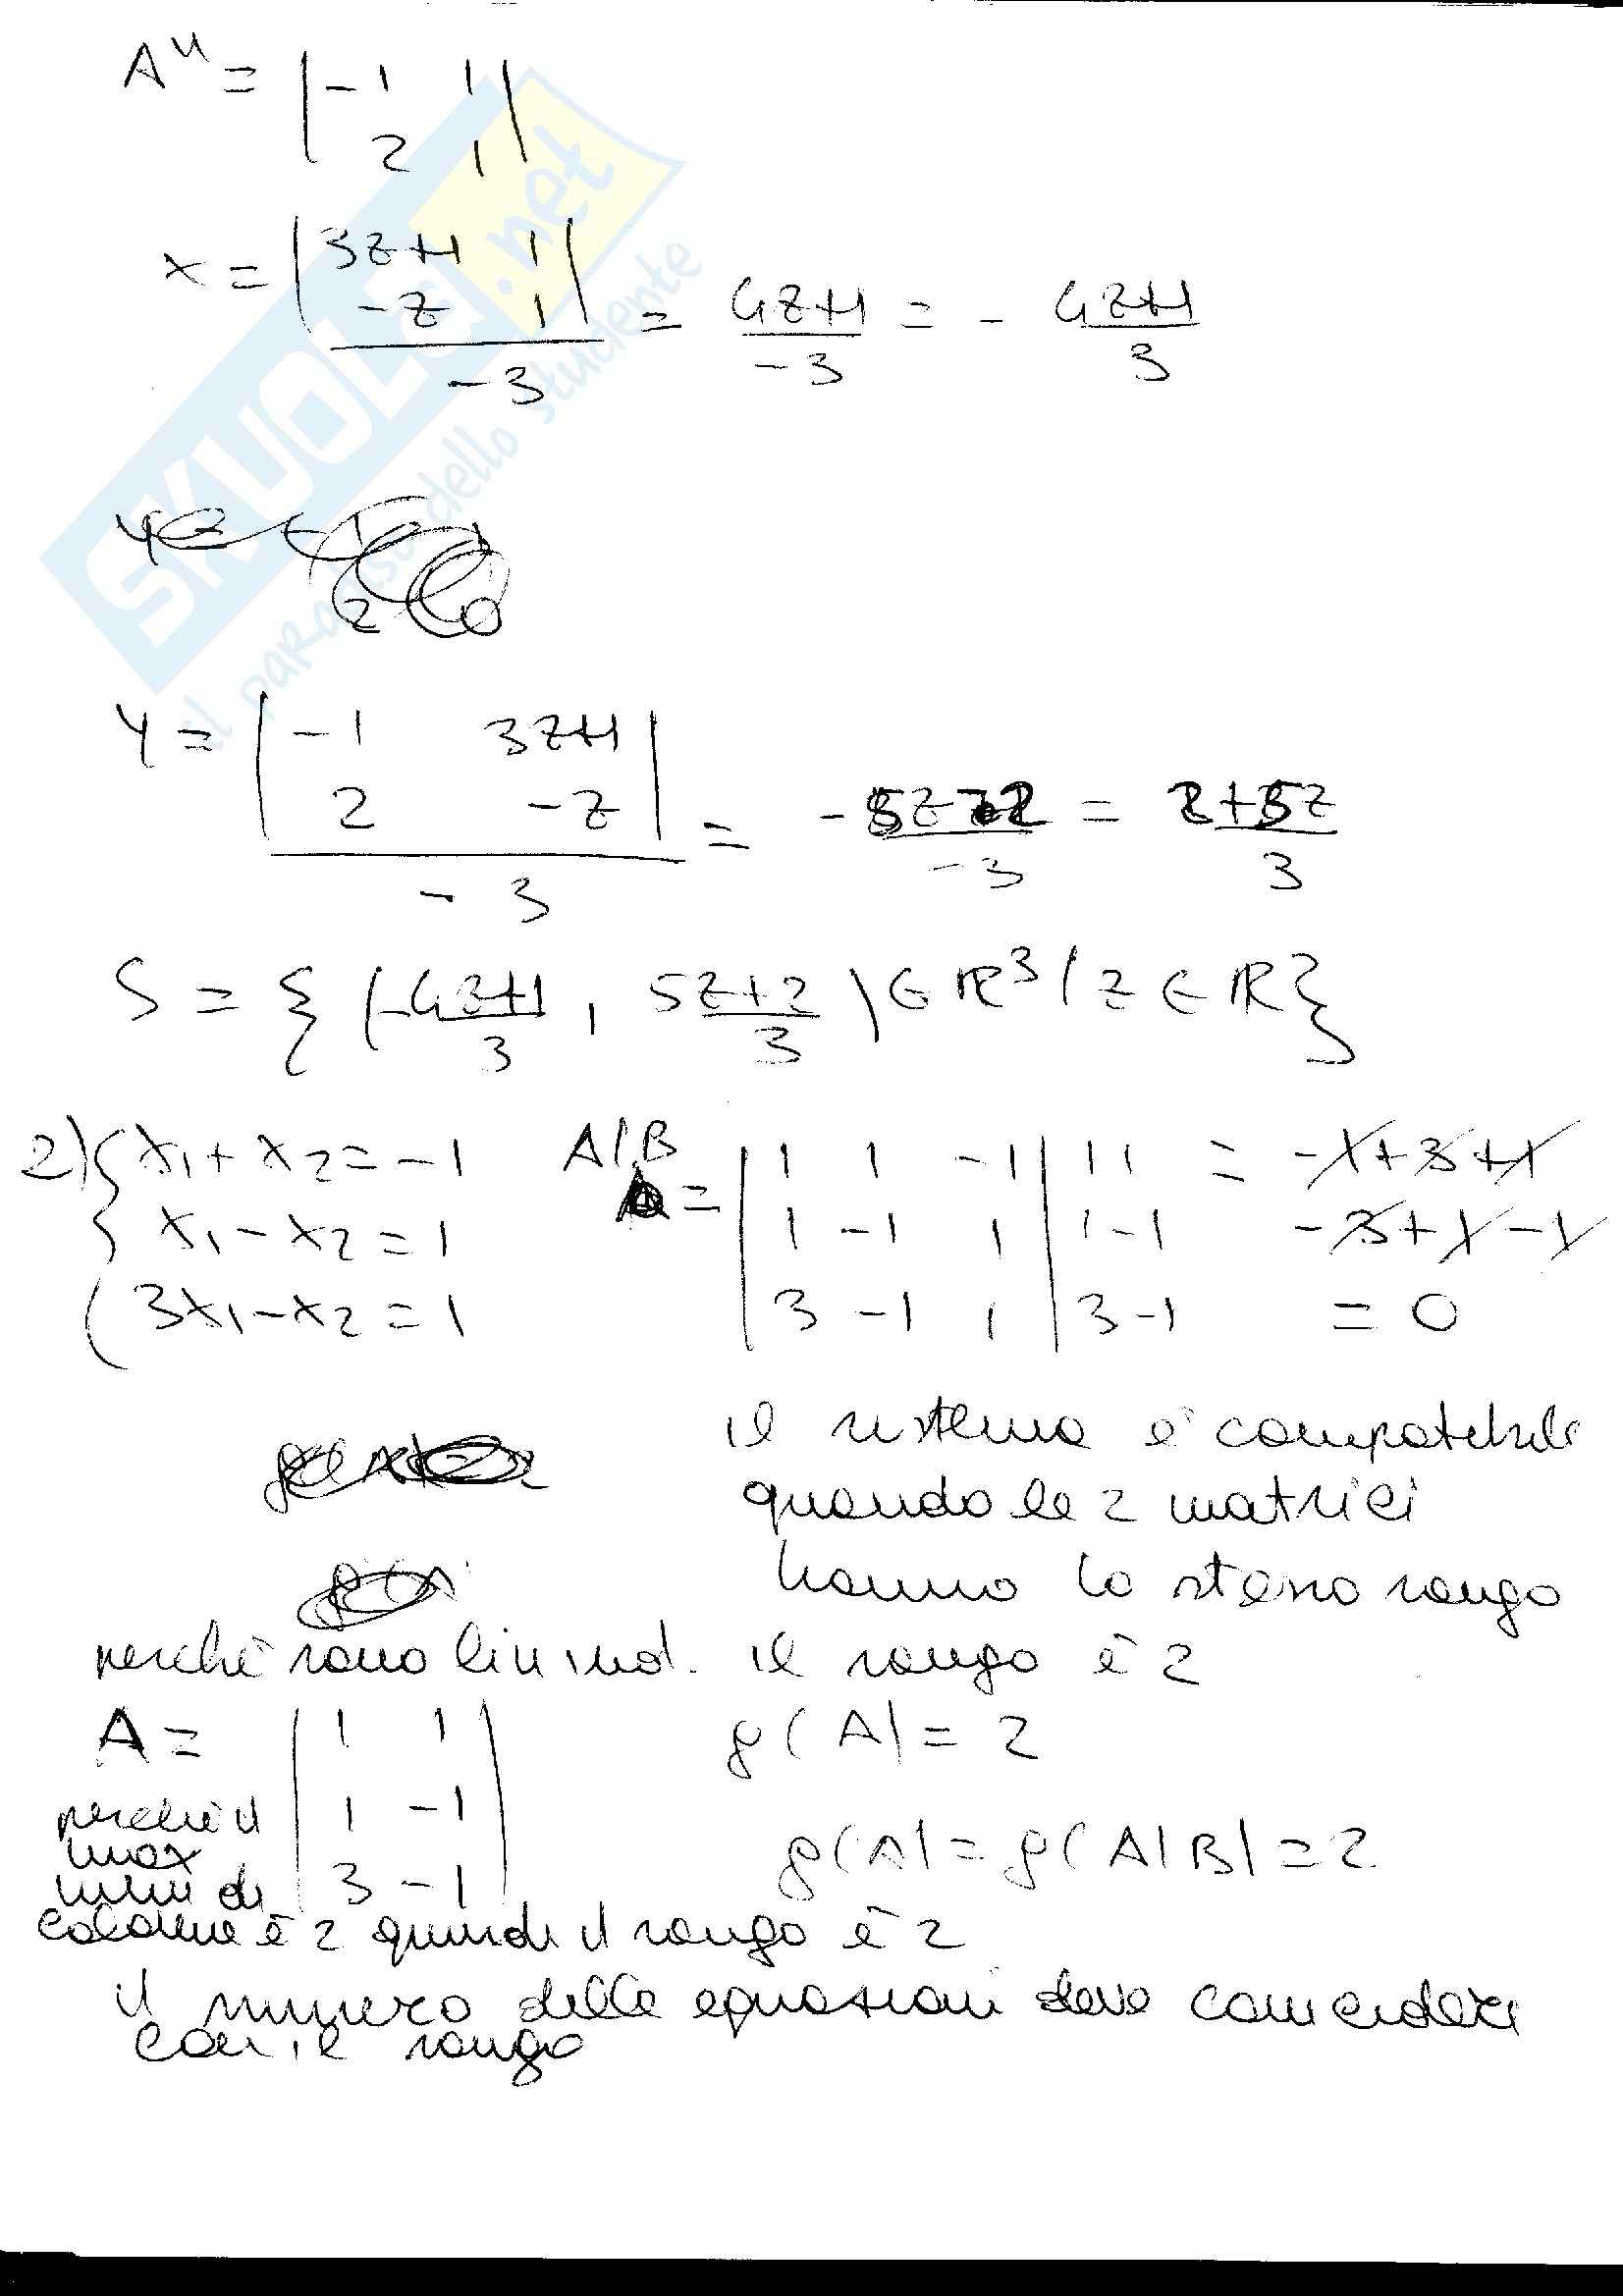 A'' = | -1 1 |
2 1
x = | 3z+1 1 |
-z 1
-3
= 4z+1 / -3 = - 4z+1 / 3
SKUOLA.net
il paradiso dello studente
Y = | -1 3z+1 |
2 -z
-3
= -5z-2 / -3 = 2+5z / 3
S = { (-4z+1 / 3 , 5z+2 / 3) ∈ R³ / z ∈ R }
2) { x1 + x2 = -1
x1 - x2 = 1
3x1 - x2 = 1
A|B = | 1 1 -1 | 1 1 = -1+3+1
1 -1 1 | 1 -1 -3+1-1
3 -1 1 | 3 -1 = 0
il sistema è compatibile
quando le 2 matrici
hanno lo stesso rango
perché sono lin ind. il rango è 2
A = | 1 1 |
1 -1
3 -1
ρ(A) = 2
ρ(A) = ρ(A|B) = 2
perché il
max
num di
colonne è 2 quindi il rango è 2
il numero delle equazioni deve coincidere
con il rango